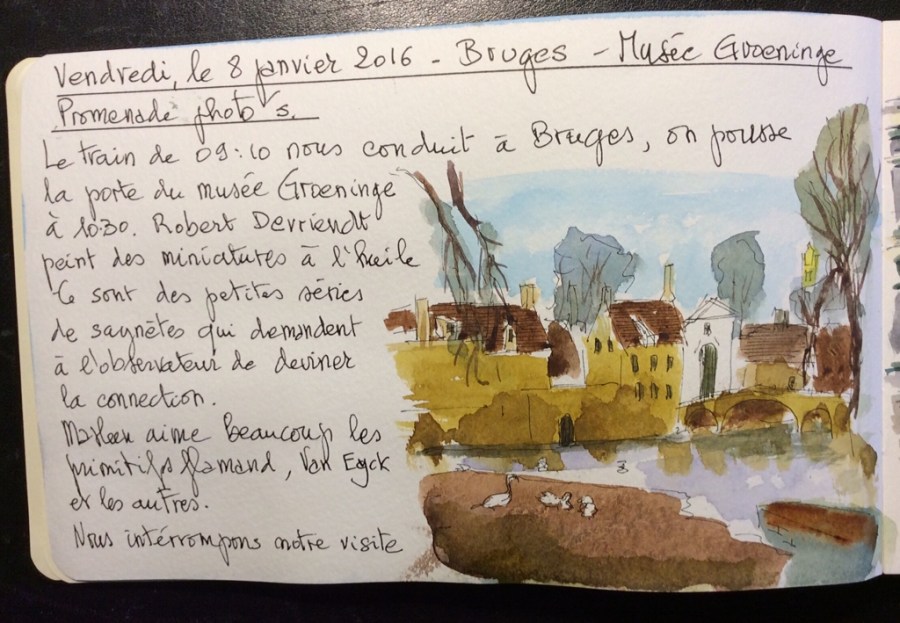 Vendredi, le 8 janvier 2016 - Bruges - Musée Groeninge
Promenade photo's.
Le train de 09:10 nous conduit à Bruges, on pousse
la porte du musée Groeninge
à 10:30. Robert Devriendt
peint des miniatures à l'huile
Ce sont des petites séries
de saynètes qui demandent
à l'observateur de deviner
la connection.
Marleen aime beaucoup les
primitifs flamand, Van Eyck
et les autres.
Nous intérrompons notre visite